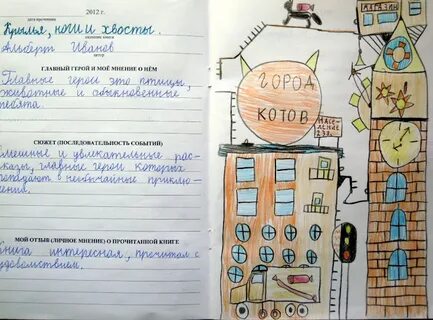 2012 г.
дата прочтения
Крылья, ноги и хвосты.
название книги
Альберт Иванов
автор
ГЛАВНЫЙ ГЕРОЙ И МОЁ МНЕНИЕ О НЁМ
Главные герои это птицы,
животные и обыкновенные
ребята.
СЮЖЕТ (ПОСЛЕДОВАТЕЛЬНОСТЬ СОБЫТИЙ)
Смешные и увлекательные рас-
сказы, главные герои которых
попадают в необычайные приклю-
чения.
МОЙ ОТЗЫВ (ЛИЧНОЕ МНЕНИЕ) О ПРОЧИТАННОЙ КНИГЕ
Книга интересная, прочитал с
удовольствием.
МАГАЗИН
ГОРОД
КОТОВ
НАСЕ-
ЛЕНИЕ